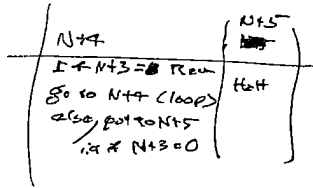 N+4
If N+3 = Rem
go to N+4 (loop)
else, go to N+5
i.e. if N+3=0
N+5
Halt